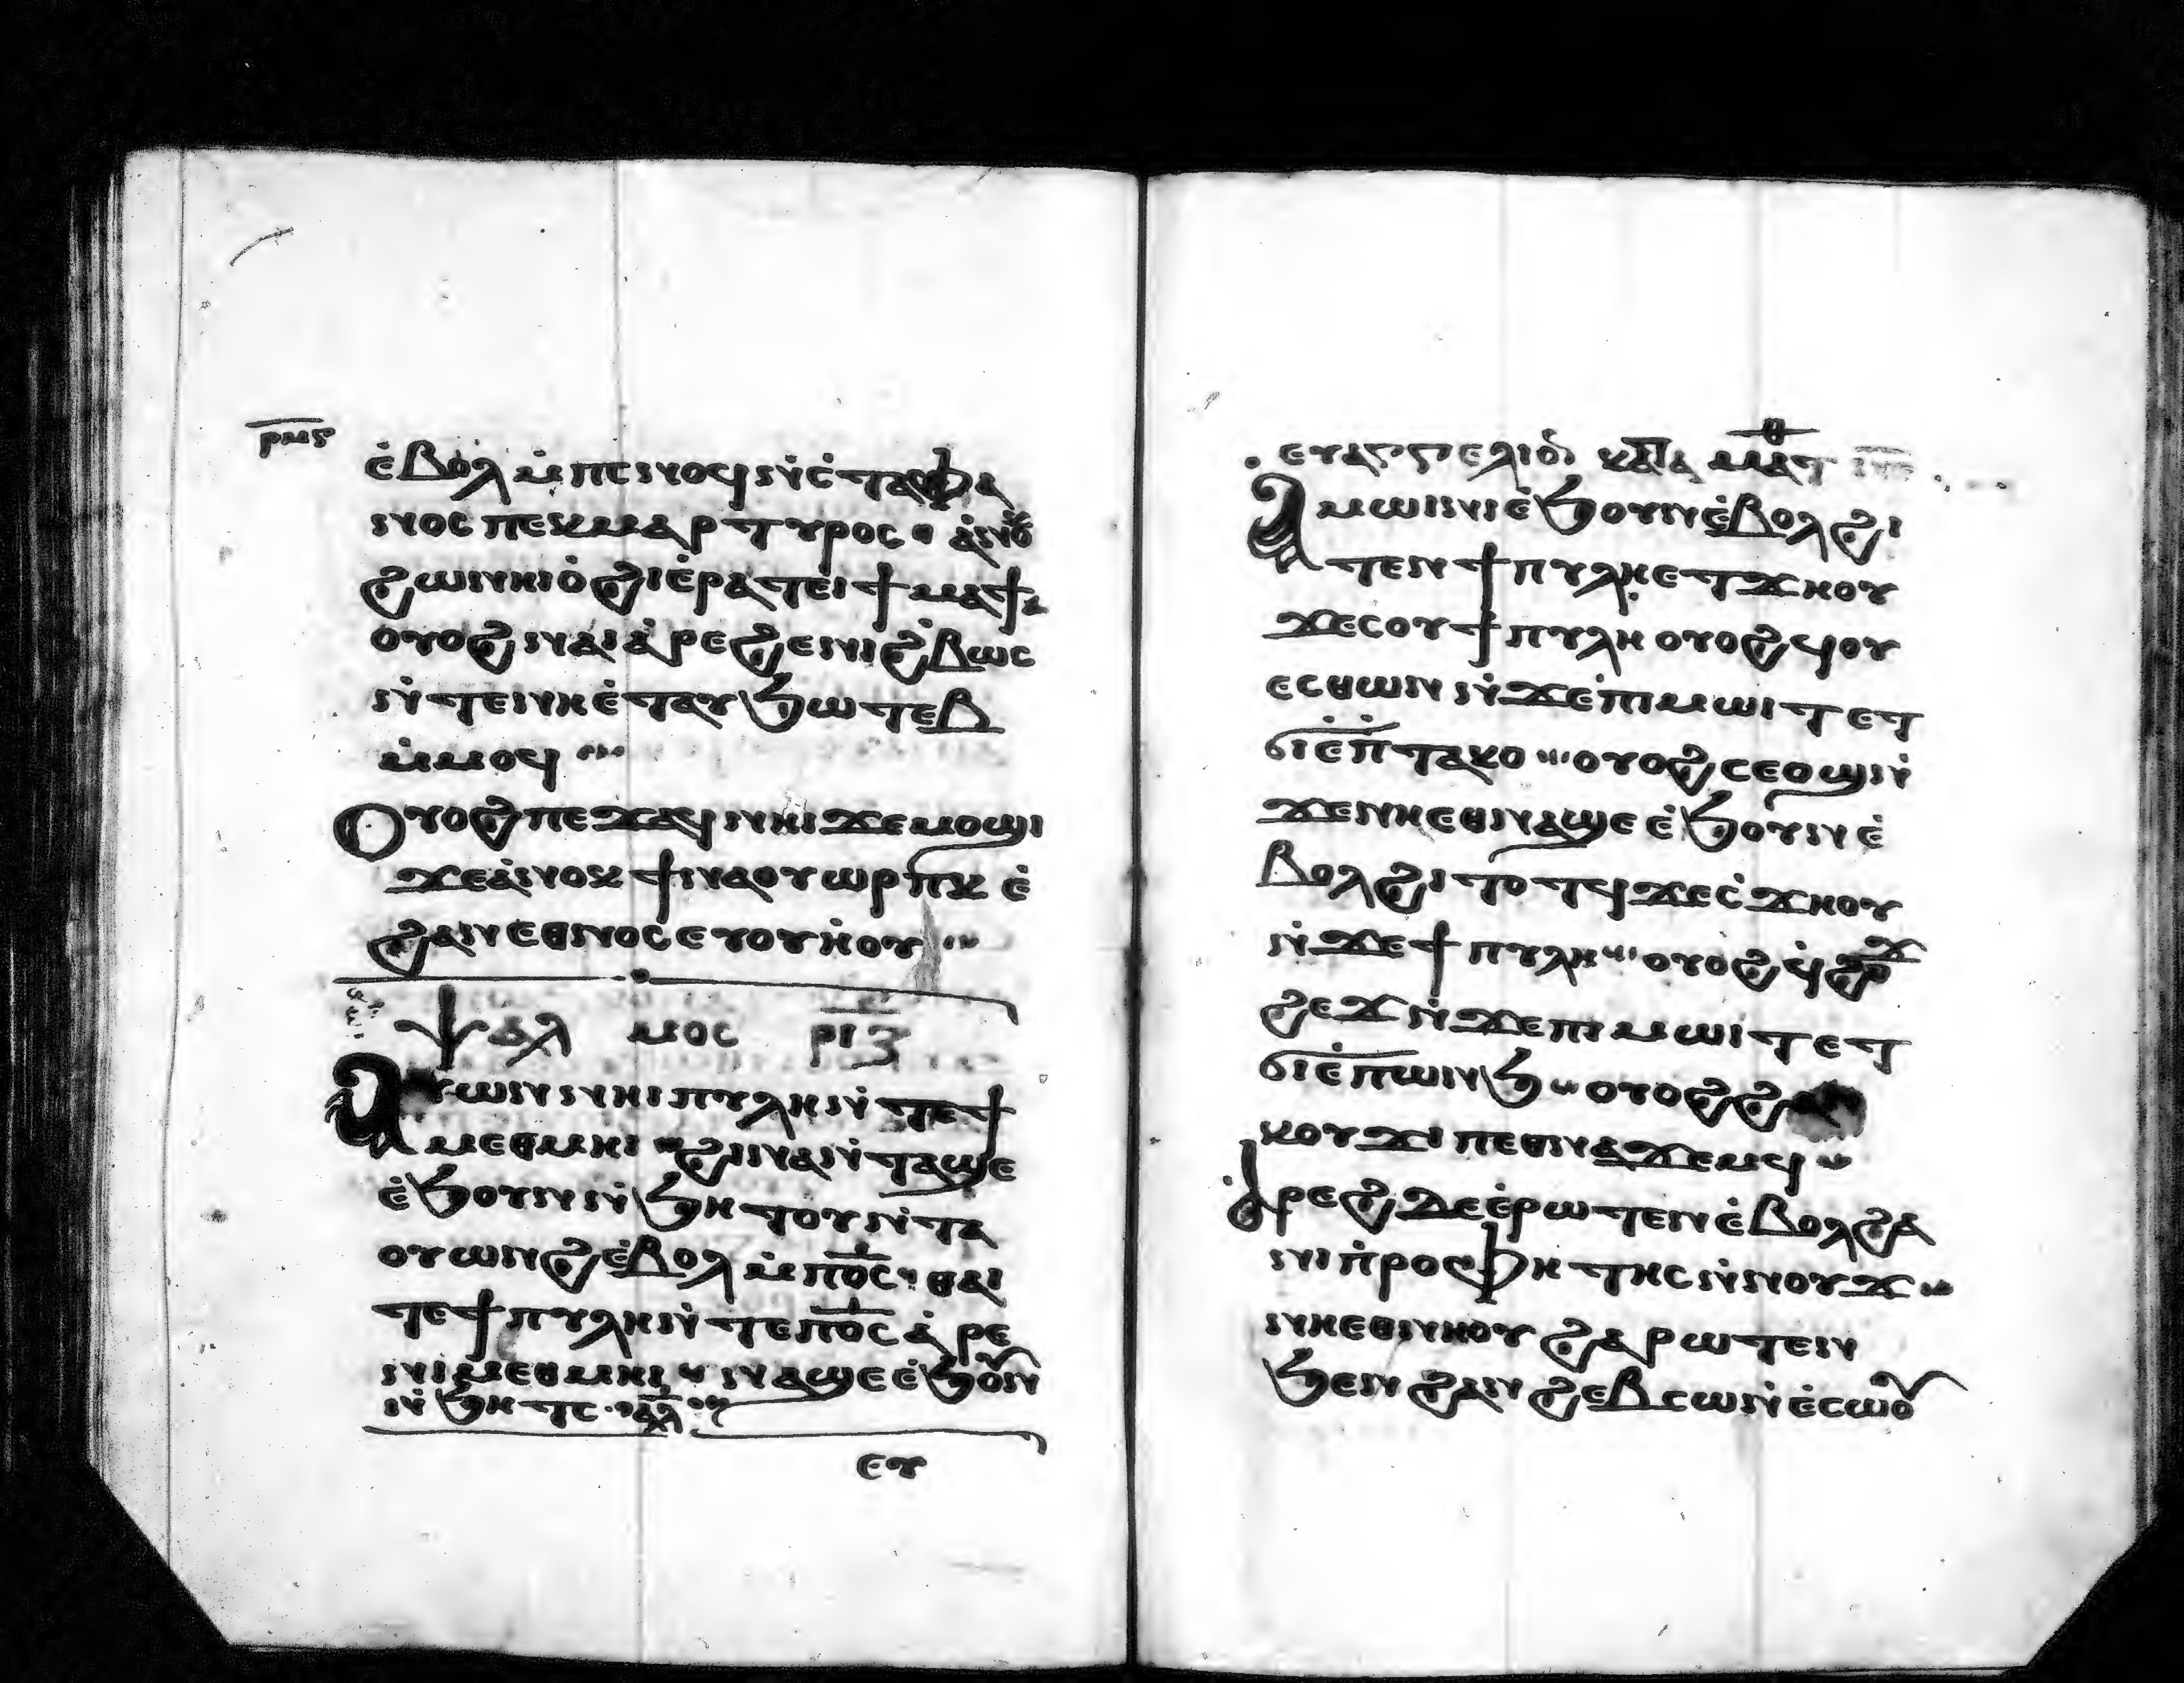 ⲣⲙⲋ
ⲉ̀ⲃⲟⲗ ⲙ̀ⲡⲥⲛⲟϥ ⲛ̀ⲥ̀ⲧⲉⲫⲁ
ⲛⲟⲥ ⲡⲉⲕⲙⲁⲣⲧⲩⲣⲟⲥ ⲁ̀ⲛⲟⲕ
ϩⲱ ⲛⲁⲓⲟ̀ϩⲓ ⲉ̀ⲣⲁⲧ ⲉⲓϯⲙⲁϯ
ⲟⲩⲟϩ ⲛⲁⲓⲁ̀ⲣⲉϩ ⲉⲛⲓϩ̀ⲃⲱⲥ
ⲛ̀ⲧⲉ ⲛⲏⲉ̀ⲧⲁⲩϧⲱⲧⲉⲃ
ⲙ̀ⲙⲟϥ
Ⲟⲩⲟϩ ⲡⲉϫⲁϥ ⲛⲏⲓ ϫⲉ ⲙⲟϣⲓ
ϫⲉ ⲁ̀ⲛⲟⲕ ϯⲛⲁⲟⲩⲱⲣⲡⲕ ⲉ̀
ϩⲁⲛⲉⲑⲛⲟⲥ ⲉⲩⲟⲩⲏⲟⲩ
ⲯⲁⲗⲙⲟⲥ ⲣⲓⲍ
Ⲁⲩⲱⲛ ⲛⲏⲓ ⲡⲩⲗⲏ ⲛ̀ⲧⲉ ϯ
ⲙⲉⲑⲙⲏⲓ ϩⲓⲛⲁ ⲛ̀ⲧⲁϣⲉ
ⲉ̀ϧⲟⲩⲛ ⲛ̀ϧⲏⲧⲟⲩ ⲛ̀ⲧⲁ
ⲟⲩⲱⲛϩ ⲉ̀ⲃⲟⲗ ⲙ̀ⲡⲟ̅ⲥ̅ ⲑⲁⲓ
ⲧⲉ ϯⲡⲩⲗⲏ ⲛ̀ⲧⲉ ⲡⲟ̅ⲥ̅ ⲁ̀ⲣⲉ
ⲛⲓⲙⲉⲑⲙⲏⲓ ⲛⲁϣⲉ ⲉ̀ϧⲟⲩⲛ
ⲛ̀ϧⲏⲧⲥ ⲁ̅ⲗ̅
ⲉⲩ
ⲉⲩⲁⲅⲅⲉⲗⲓⲟⲛ ⲕⲁⲧⲁ ⲙⲁⲧⲑ
Ⲁⲙⲱⲓⲛⲓ ⲉ̀ϧⲟⲩⲛ ⲉ̀ⲃⲟⲗ ϩⲓ
ⲧⲉⲛ ϯⲡⲩⲗⲏ ⲉⲧϫⲏⲟⲩ
ϫⲉ ⲥⲟⲩ ϯⲡⲩⲗⲏ ⲟⲩⲟϩ ϥⲟⲩ
ⲉⲥⲑⲱⲛ ⲛ̀ϫⲉ ⲡⲓⲙⲱⲓⲧ ⲉⲧ
ϭⲓ ⲉ̀ⲡⲧⲁⲕⲟ ⲟⲩⲟϩ ⲥⲉⲟϣ ⲛ̀
ϫⲉ ⲛⲏⲉⲑⲛⲁϣⲉ ⲉ̀ϧⲟⲩⲛ ⲉ̀
ⲃⲟⲗ ϩⲓⲧⲟⲧϥ ϫⲉ ⲥ̀ϫⲏⲟⲩ
ⲛ̀ϫⲉ ϯⲡⲩⲗⲏ ⲟⲩⲟϩ ϥ̀
ϩⲉϫ ⲛ̀ϫⲉ ⲡⲓⲙⲱⲓⲧ ⲉⲧ
ϭⲓ ⲉ̀ⲡⲱⲛϧ ⲟⲩⲟϩ ϩⲁⲛ
ⲕⲟⲩϫⲓ ⲡⲉⲑⲛⲁϫⲉⲙϥ
Ⲁ̀ⲣⲉϩ ⲇⲉ ⲉ̀ⲣⲱⲧⲉⲛ ⲉ̀ⲃⲟⲗ ϩⲁ
ⲛⲓⲡ̀ⲣⲟⲫⲏⲧⲏⲥ ⲛ̀ⲛⲟⲩϫ
ⲛⲏⲉⲑⲛⲏⲟⲩ ϩⲁⲣⲱⲧⲉⲛ
ϧⲉⲛ ϩⲁⲛϩⲉⲃⲥⲱ ⲛ̀ⲉ̀ⲥⲱⲟⲩ